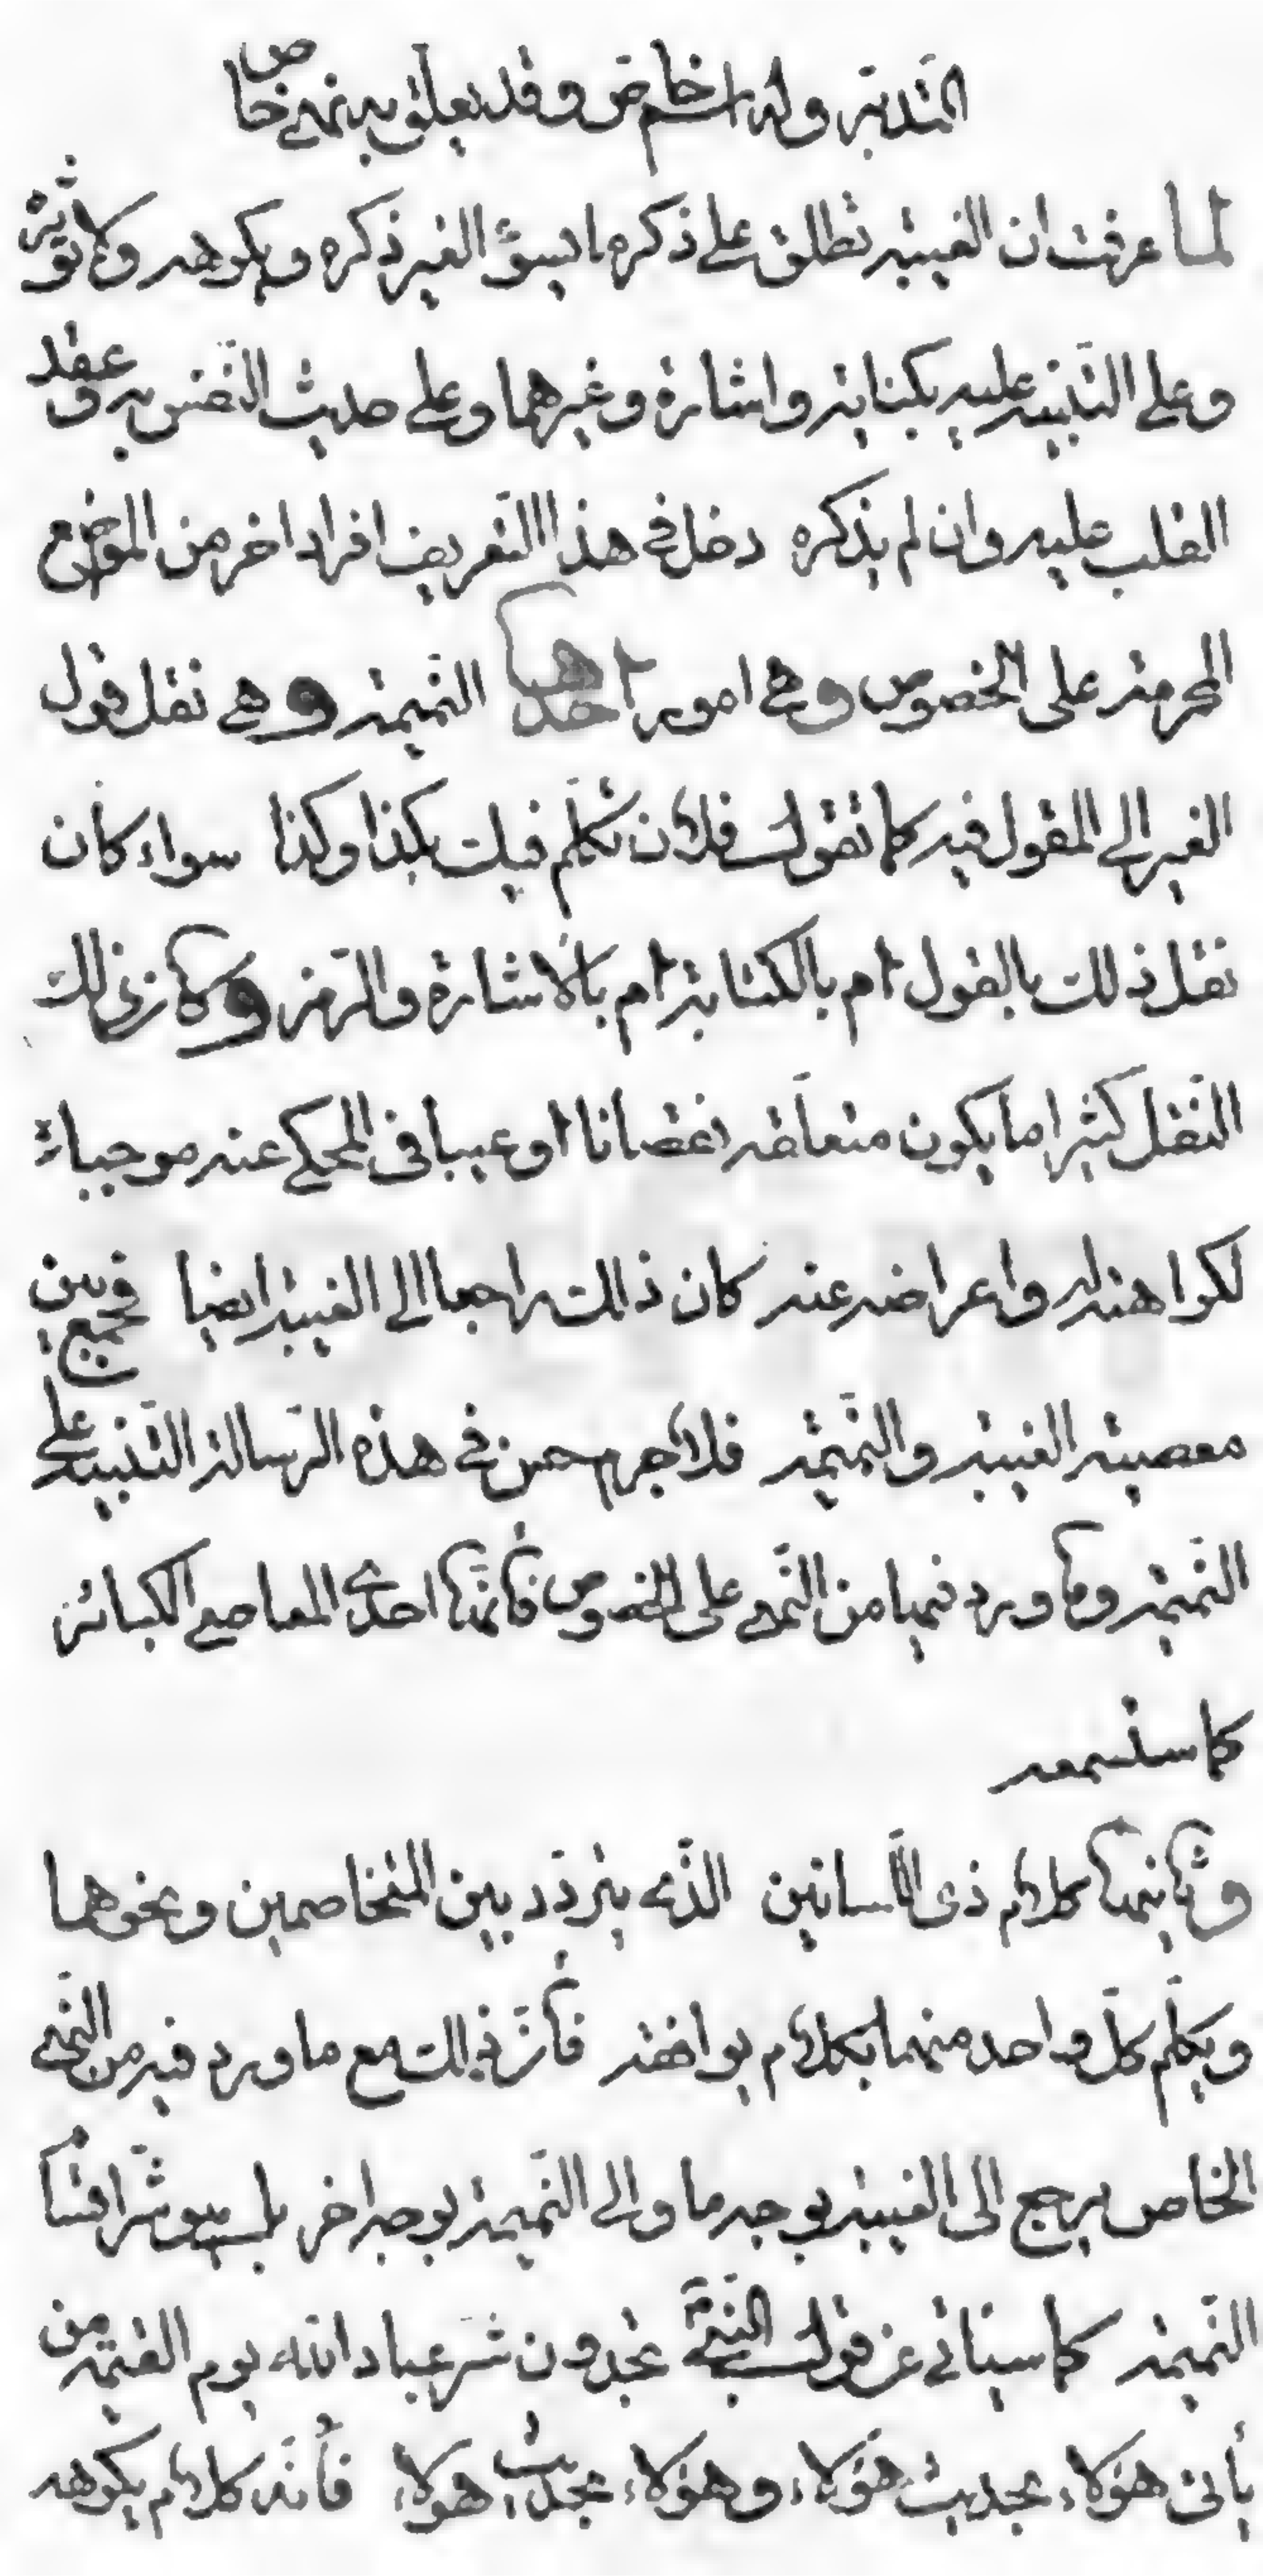 الغيبة وله اسم خاص وقد يعلق به نهي خاص
لما عرفت ان الغيبة تطلق على ذكر ما يسوؤ الغير ذكره ويكرهه ولا يؤثره
وعلى التنبيه عليه بكناية واشارة وغيرهما وعلى حديث النفس به وعقد
القلب عليه وان لم يذكره دخل في هذا التعريف افراد اخر من المواضع
المحرمة على الخصوص وهي امور احدها النميمة وهي نقل قول
الغير الى المقول فيه كما تقول فلان تكلم فيك بكذا وكذا سواء كان
نقل ذلك بالقول ام بالكتابة ام بالاشارة والرمز وكان ذلك
النقل كثيرا ما يكون متعلقه نقصانا او عيبا في المحكي عنه موجبا
لكراهته له واعراضه عنه كان ذلك راجعا الى الغيبة ايضا فجمع بين
معصية الغيبة والنميمة فلا جرم حسن في هذه الرسالة التنبيه على
النميمة وما ورد فيها من النهي على الخصوص فانها احدى المعاصي الكبائر
كما ستسمعه
وثانيها كلام ذى اللسانين الذي يتردد بين المتخاصمين ونحوهما
ويكلم كل واحد منهما بكلام يوافقه فان ذلك مع ما ورد فيه من النهي
الخاص يرجع الى الغيبة بوجه ما والى النميمة بوجه اخر بل هو شر اقسام
النميمة كما سيأتي عن قول النبي تجدون شر عباد الله يوم القيمة من
يأتى هؤلاء بحديث هؤلاء وهؤلاء بحديث هؤلاء فانه كلام يكرهه